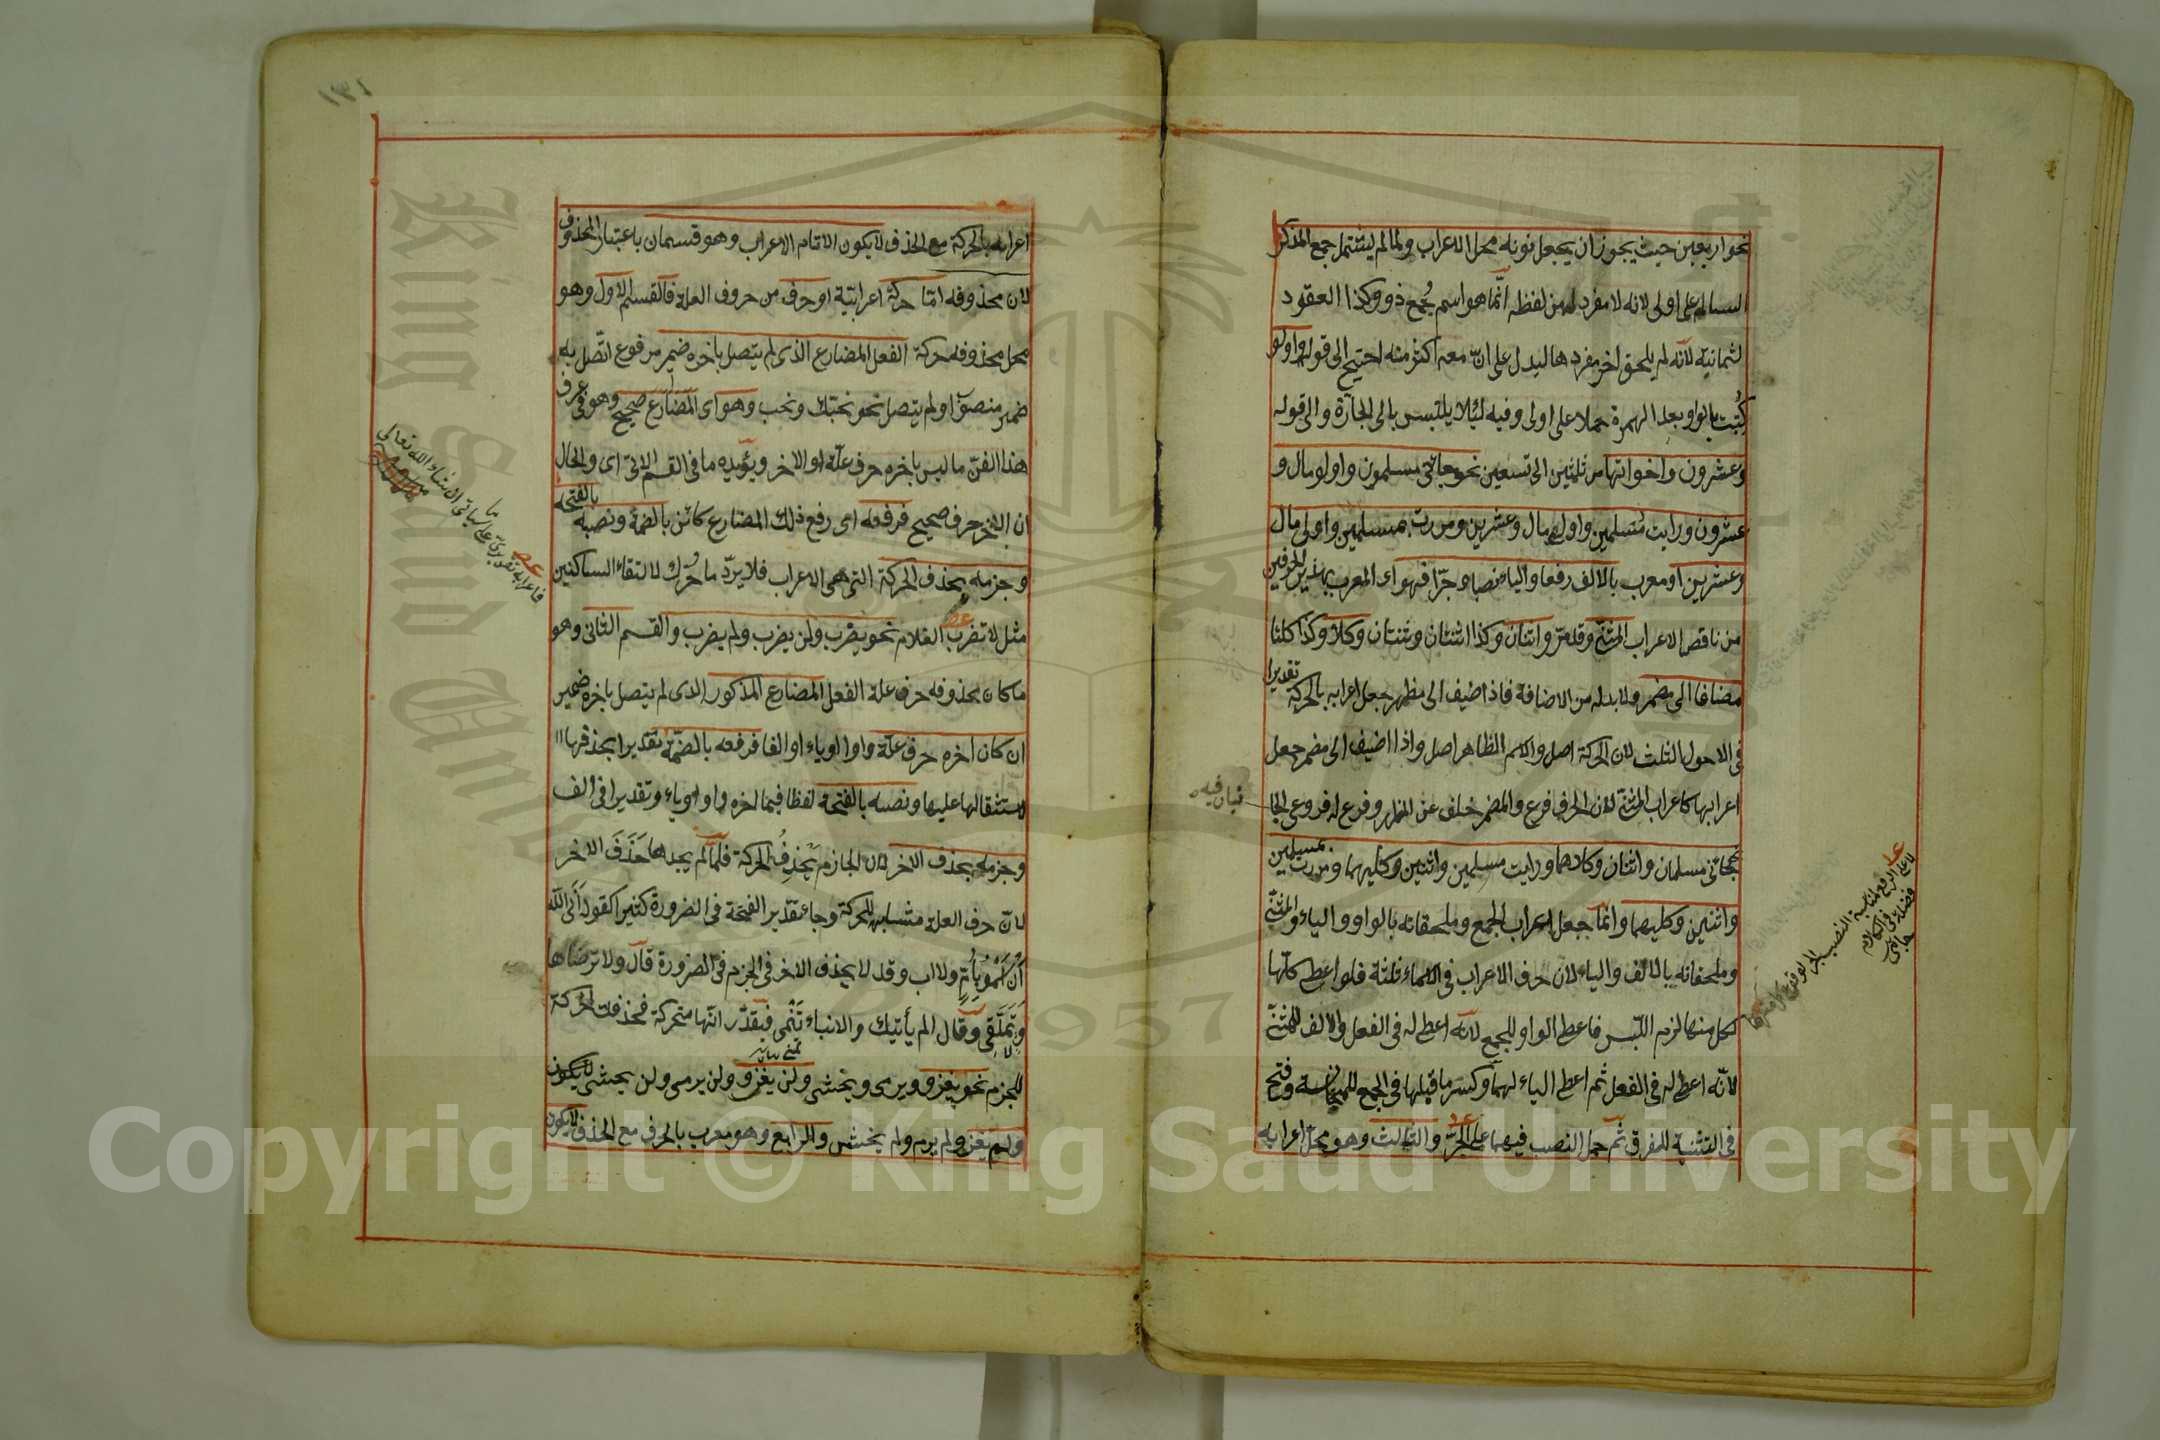 نحو اربعين حيث يجوز ان يجعل نونه محل الاعراب ولما لم يشتمل جمع المذكر
السالم على اولى لانه لا مفرد له من لفظه انما هو اسم جمع ذو وكذا العقود
لثمانية لانه لم يلحق اخر مفردها ليدل على ان معه اكثر منه احتيج الى قوله واولو
كتبت بالواو بعد الهمزة حملا على اولى وفيه لئلا يلتبس بالى الجارة والى قوله
وعشرون واخواتها من ثلثين الى تسعين نحو جائنى مسلمون واولو مال و
عشرون ورايت مسلمين واولى مال وعشرين ومررت بمسلمين واولى مال
وعشرين او معرب بالالف رفعا والياء نصبا وجرا فهو اى المعرب بهذين الحرفين
من ناقص الاعراب المثنى وقد مر واثنان وكذا اثنتان وثنتان وكلا وكذا كلتا
مضافا الى مضمر ولا بد له من الاضافة فاذا اضيف الى مظهر جعل اعرابه بالحركة تقديرا
فى الاحوال الثلث لان الحركة اصل والاسم الظاهر اصل واذا اضيف الى مضمر جعل
اعرابها كاعراب المثنى لان الحرف فرع والمضمر خلف عن الظاهر وفرع له فروعى الجا
نبان فيه
نحو جائنى مسلمان واثنان وكلاهما ورايت مسلمين واثنين وكليهما ومررت بمسلمين
واثنين وكليهما وانما جعل اعراب الجمع وملحقاته بالواو والياء والمثنى
وملحقاته بالالف والياء لان حرف الاعراب فى الاسماء ثلثة فلو اعطى كلها
لكل منها لزم اللبس فاعطى الواو للجمع لانه اعطى له فى الفعل والالف للمثنى
لانه اعطى له فى الفعل ثم اعطى الياء لهما وكسر ما قبلها فى الجمع للمجانسة وفتح
فى التثنية للفرق ثم حمل النصب فيهما على الجر والثالث وهو محل اعرابه
لا على الرفع لمناسبة النصب الجر لوقوع كل منهما
فضلة فى الكلام
جامى
اعرابه بالحركة مع الحذف لا يكون الا تام الاعراب وهو قسمان باعتبار المحذوف
لان محذوفه اما حركة اعرابية او حرف من حروف العلة فالقسم الاول وهو
محل محذوفه حركة الفعل المضارع الذى لم يتصل باخره ضمير مرفوع اتصل به
ضمير منصوب او لم يتصل نحو نحبك ونحب وهو اى المضارع صحيح وهو فى عرف
هذا الفن ما ليس باخره حرف علة او الاخر ويؤيده ما فى القسم الاتى اى والحال
ان الاخر حرف صحيح فرفعه اى رفع ذلك المضارع كائن بالضمة ونصبه بالفتحة
وجزمه بحذف الحركة التى هى الاعراب فلا يرد ما حرك لالتقاء الساكنين
مثل لا تضرب الغلام نحو يضرب ولن يضرب ولم يضرب والقسم الثانى وهو
ما كان محذوفه حرف علة الفعل المضارع المذكور الذى لم يتصل باخره ضمير
ان كان اخره حرف علة واوا او ياء او الفا فرفعه بالضمة تقديرا بحذفها
لاستثقالها عليها ونصبه بالفتحة لفظا فيما اخره واو او ياء وتقديرا فى الف
وجزمه بحذف الاخر لان الجازم يحذف الحركة فلما لم يجدها حذف الاخر
لان حرف العلة مشابه للحركة وجاء تقدير الفتحة فى الضرورة كثيرا كقوله ابى الله
ان اسمو بام ولا اب وقد لا يحذف الاخر فى الجزم فى الضرورة قال ولا ترضاها
ولا تملقى وقال الم يأتيك والانباء تنمى فيقدر انها متحركة فحذفت الحركة
للجزم نحو يغزو ويرمى ويخشى ولن يغزو ولن يرمى ولن يخشى
ولم يغز ولم يرم ولم يخش والرابع وهو معرب بالحرف مع الحذف لا يكون
فاعرابه تقديرى على ما سيأتى ان شاء الله تعالى
King Saud University
1957
Copyright © King Saud University